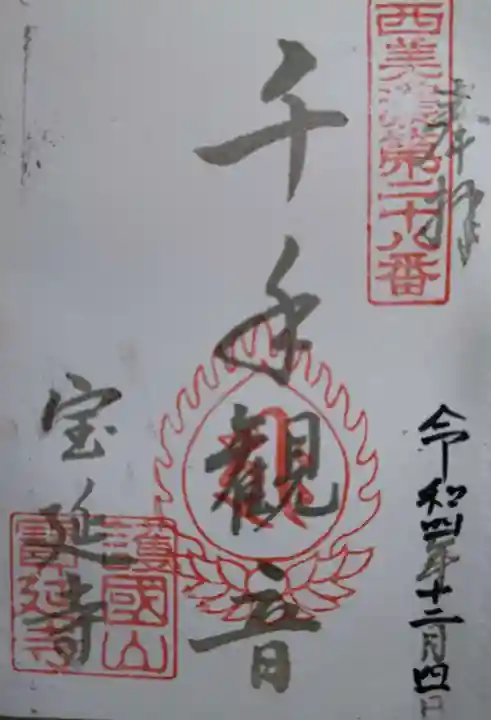 西美濃第二十八番
奉拝
令和四年十二月四日
千手観音
護國山
寳延寺
宝延寺